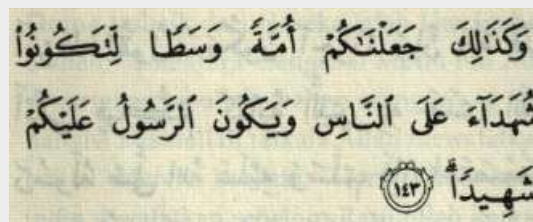 وَكَذَٰلِكَ جَعَلْنَٰكُمْ أُمَّةً وَسَطًا لِّتَكُونُوا۟
شُهَدَآءَ عَلَى ٱلنَّاسِ وَيَكُونَ ٱلرَّسُولُ عَلَيْكُمْ
شَهِيدًاۗ ١٤٣